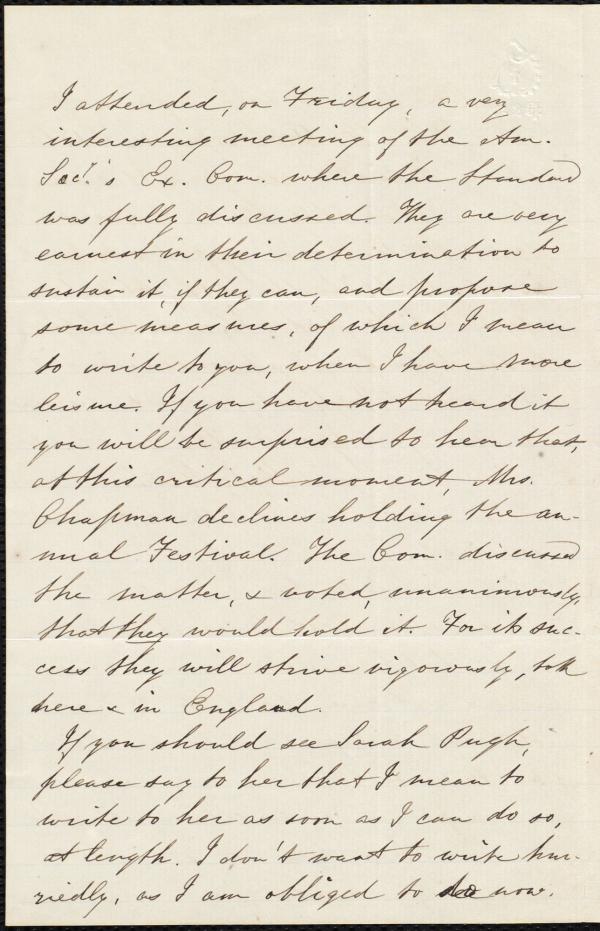 I attended, on Friday, a very
interesting meeting of the Am.
Soc'.s Ex. Com. where the Standard
was fully discussed. They are very
earnest in their determination to
sustain it, if they can, and propose
some measures, of which I mean
to write to you, when I have more
leisure. If you have not heard it
you will be surprised to hear that,
at this critical moment, Mrs.
Chapman declines holding the an-
nual Festival. The Com. discussed
the matter, & voted, unanimously,
that they would hold it. For its suc-
cess they will strive vigorously, both
here & in England.
If you should see Sarah Pugh,
please say to her that I mean to
write to her as soon as I can do so,
at length. I don't want to write hur-
riedly, as I am obliged to do now.